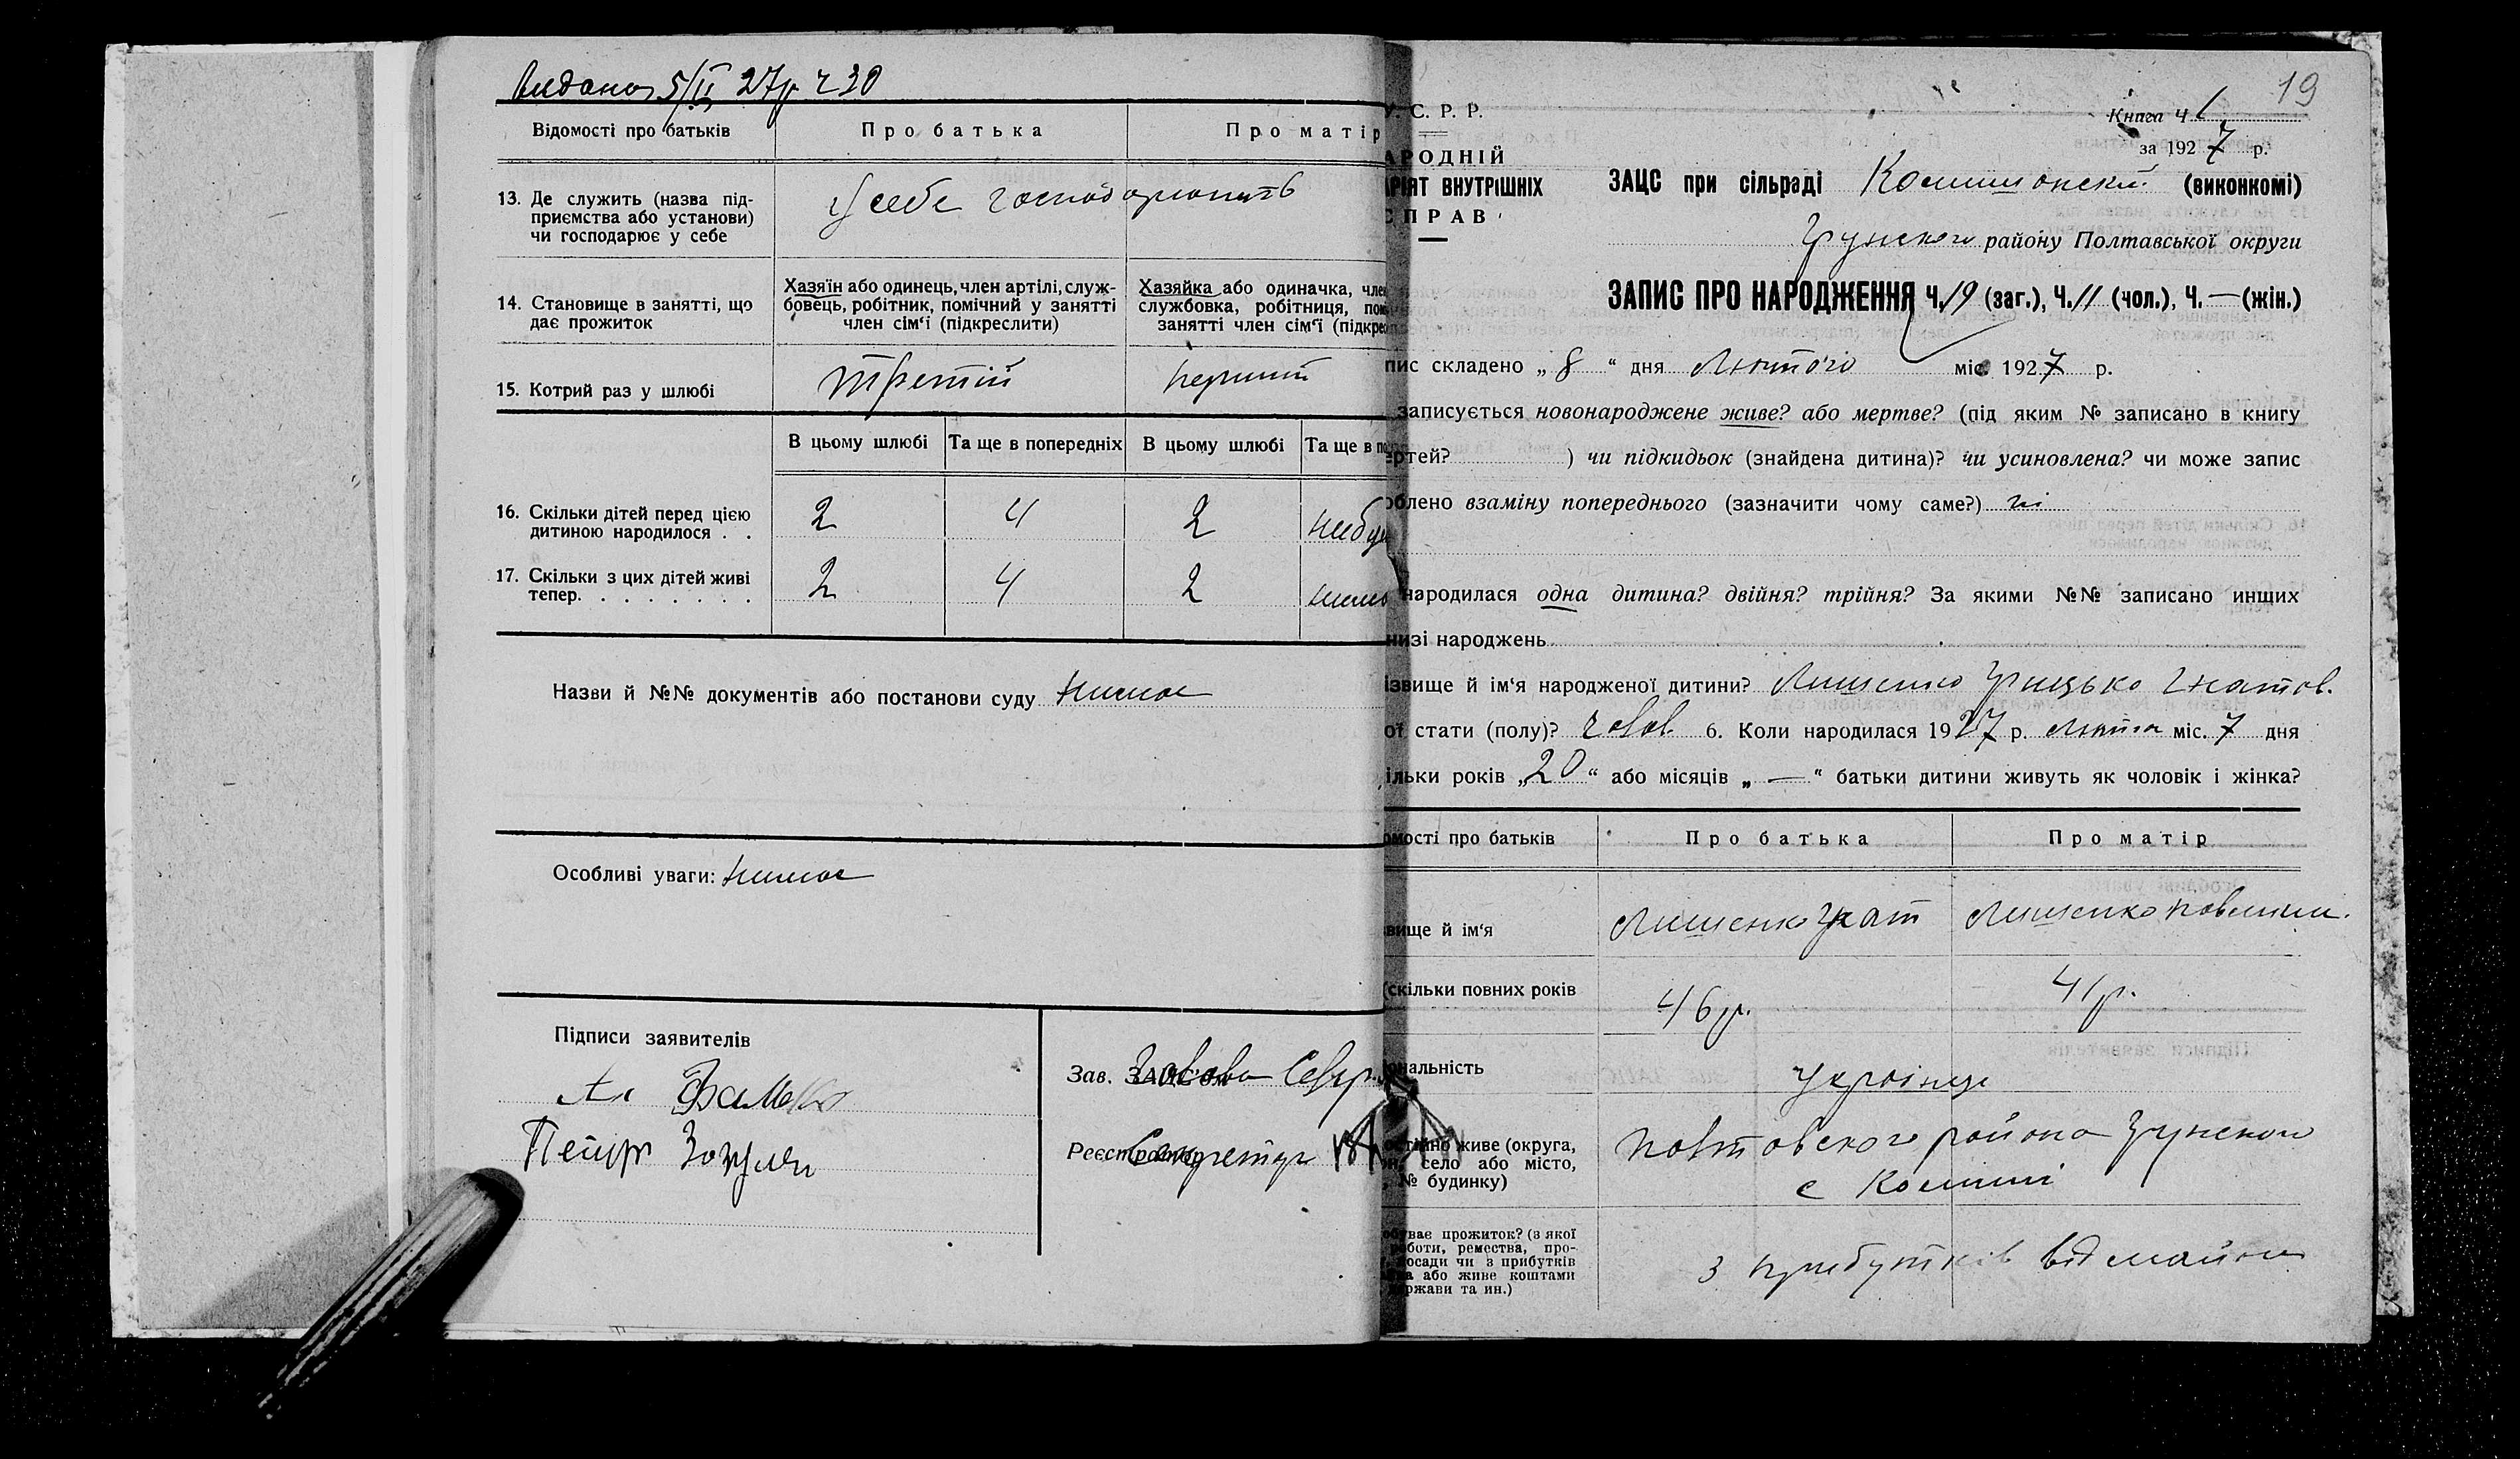 Видано 5/II 27р ч 30
Відомості про батьків
Про батька
Про матір
13. Де служить (назва під-
приємства або установи)
чи господарює у себе
У себе господарюють
14. Становище в занятті, що
дає прожиток
Хазяїн або одинець, член артілі, служ-
бовець, робітник, помічний у занятті
член сім'ї (підкреслити)
Хазяйка або одиначка, член
службовка, робітниця, по
занятті член сім'ї (підкре
15. Котрий раз у шлюбі
третій
перший
В цьому шлюбі
Та ще в попередніх
В цьому шлюбі
Та ще в по
16. Скільки дітей перед цією
дитиною народилося . .
2
4
2
17. Скільки з цих дітей живі
тепер. . . . . . . .
2
4
2
Назви й №№ документів або постанови суду немає
Особливі уваги: немає
Підписи заявителів
Петр Зозуля
Зав. ЗАЦС'ом Голова
Реєстратор Секретар
У. С. Р. Р.
АРОДНІЙ
РІЯТ ВНУТРІШНІХ
СПРАВ
19
Книга Ч 1
за 1927 р.
ЗАЦС при сільраді (виконкомі)
Грунського району Полтавської округи
ЗАПИС ПРО НАРОДЖЕННЯ Ч. 19 (заг.), Ч. 11 (чол.), Ч. — (жін.)
пис складено „ 8 " дня Лютого міс. 1927 р.
записується новонароджене живе? або мертве? (під яким № записано в книгу
ртей? ) чи підкидьок (знайдена дитина)? чи усиновлена? чи може запис
блено взаміну попереднього (зазначити чому саме?) ні
народилася одна дитина? двійня? трійня? За якими №№ записано инших
низі народжень
ізвище й ім'я народженої дитини? Лишенко Грицько Гнатов.
ої стати (полу)? чолов. 6. Коли народилася 1927 р. лютого міс. 7 дня
ільки років „ 20 " або місяців „ — " батьки дитини живуть як чоловік і жінка?
омості про батьків
Про батька
Про матір
вище й ім'я
Лишенко Гнат
Лишенко
скільки повних років
46 р.
41 р.
ональність
Українці
остійно живе (округа,
он, село або місто,
№ будинку)
Полтавського району Грунського
с
обуває прожиток? (з якої
роботи, ремества, про-
посади чи з прибутків
на або живе коштами
ержави та ин.)
з прибутків від майна